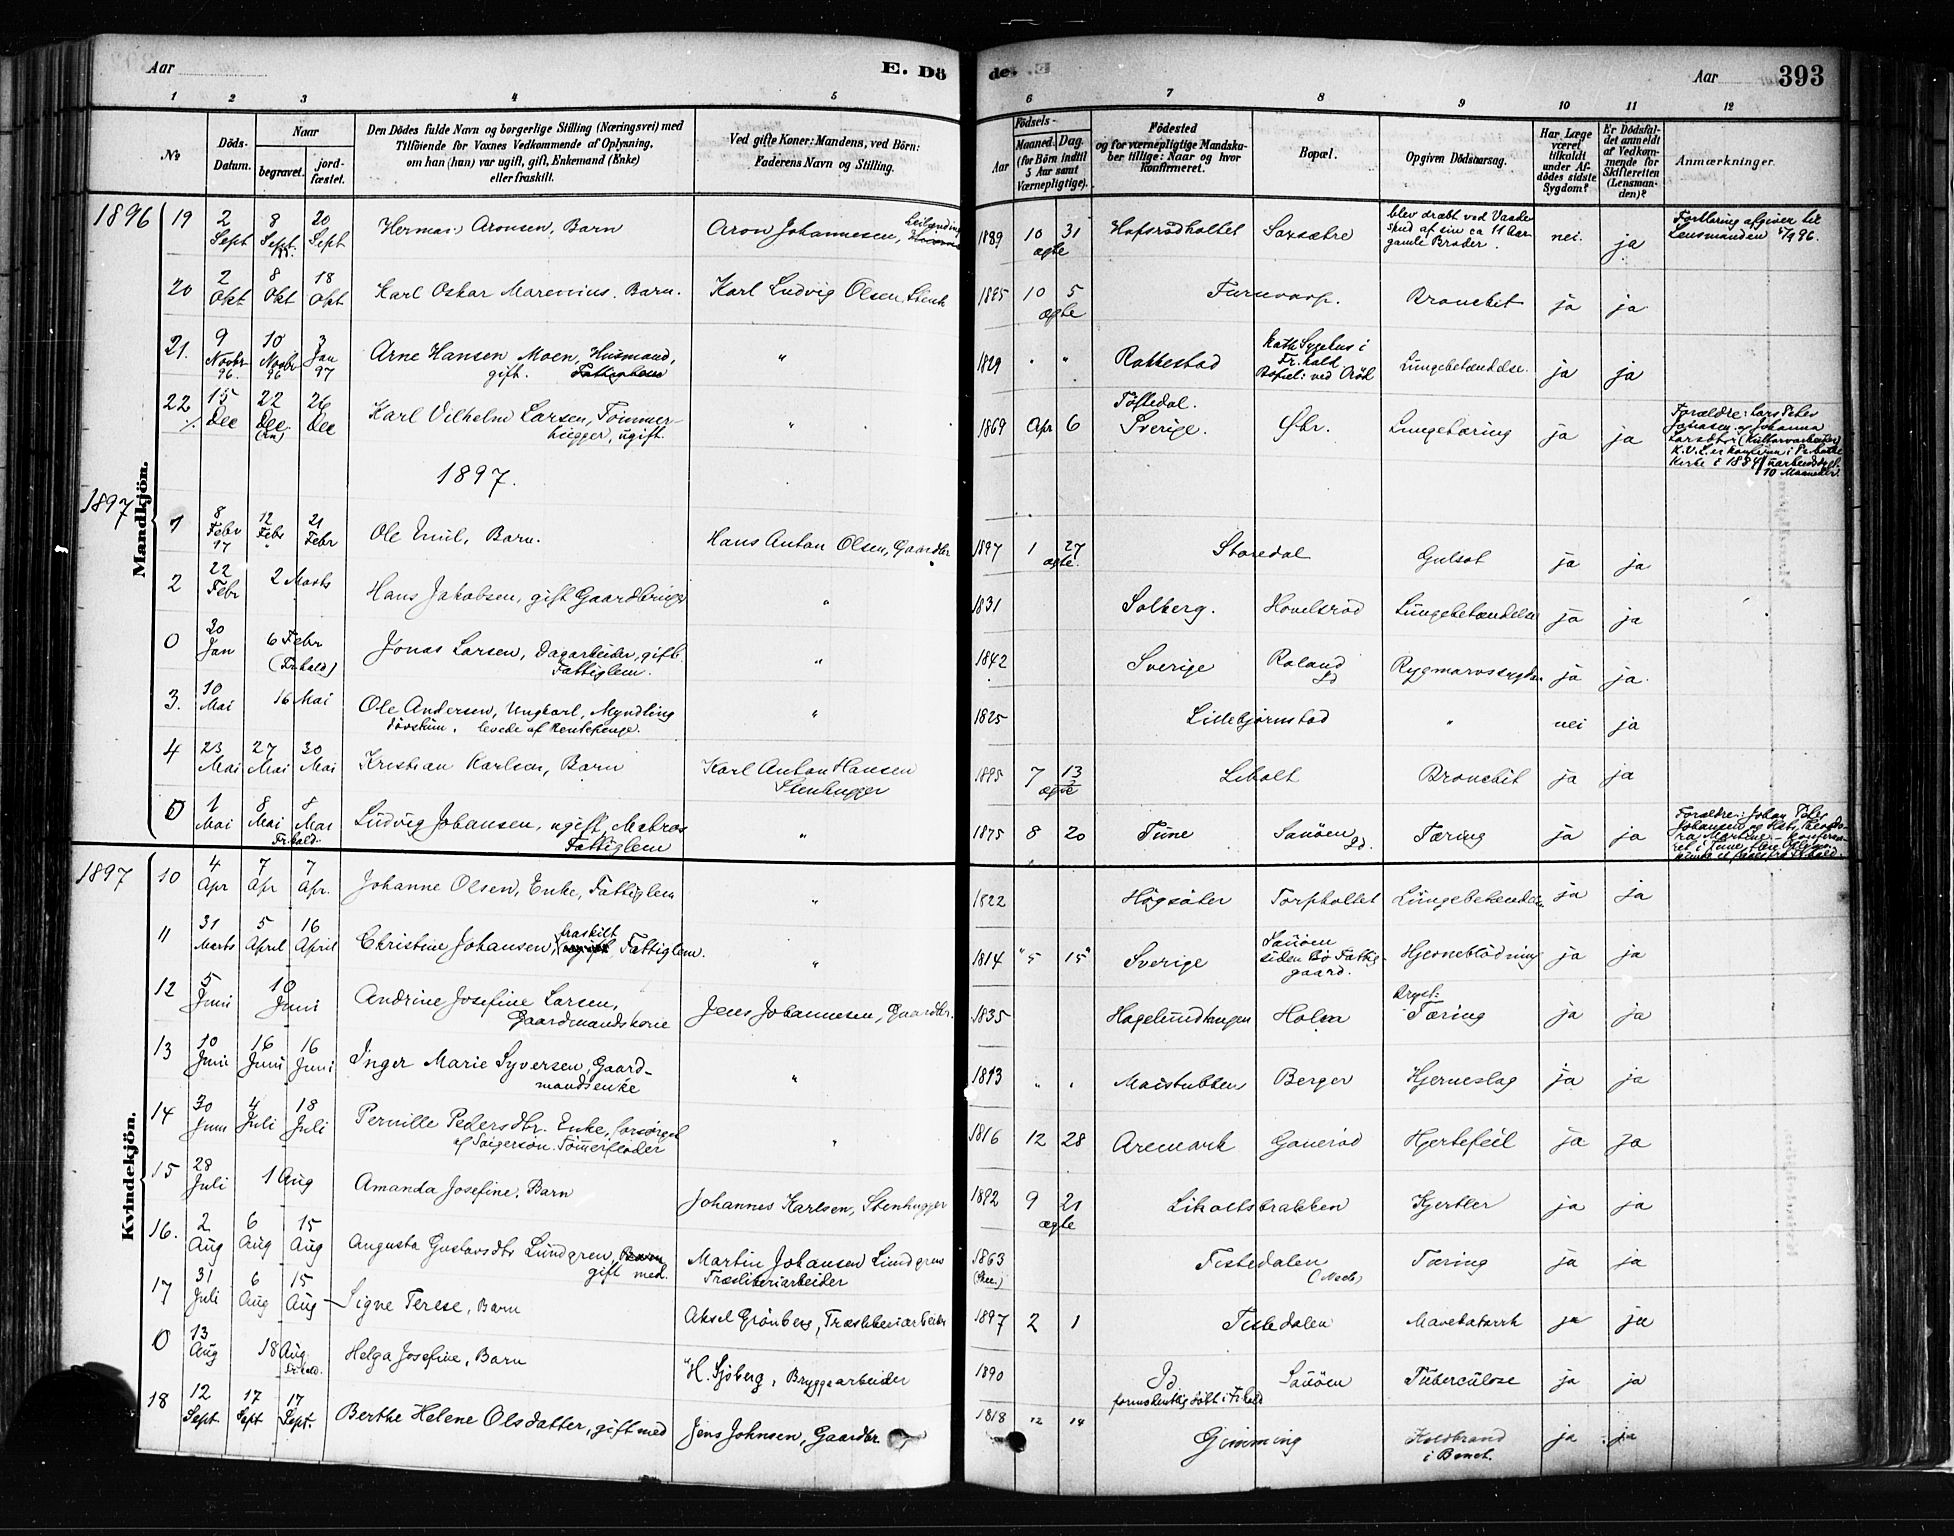 Aar
E. Dö
de. E.
Aar
393
1 2 3 4 5 6 7 8 9 10 11 12
No
Döds-Datum.
Naar begravet. jordfæstet.
Den Dödes fulde Navn og borgerlige Stilling (Næringsvei) med
Tilföiende for Voxnes Vedkommende af Oplysning,
om han (hun) var ugift, gift, Enkemand (Enke)
eller fraskilt.
Ved gifte Koner: Mandens, ved Börn:
Faderens Navn og Stilling.
Födsels-
Aar Maaned. Dag.
(for Börn indtil 5 Aar samt Værnepligtige).
Födested
og for værnepligtige Mandskaber tillige: Naar og hvor Konfirmeret.
Bopæl.
Opgiven Dödsaarsag.
Har Læge været tilkaldt under Afdödes sidste Sygdom?
Er Dödsfaldet anmeldt af Vedkommende for Skifteretten (Lensmanden)?
Anmærkninger.
Mandkjön.
1896 19 2 Sept 8 Sept 20 Sept Aronsen, Barn Aron Johannesen, 1889 10 31 ægte Hafsrödholtet Saxsætre blev dræbt ved Vaadeskud af sin ca 11 Aar gamle Broder. nei. ja Forklaring afgiven til Lensmanden
20 2 Okt 8 Okt 18 Okt Karl Oskar Marenius. Barn. Karl Ludvig Olsen, Stenh 1895 10 5 ægte Bronchit ja ja
21. 9 Novbr 96. 10 Novbr 96 3 Jan 97 Arne Hansen Moen, Husmand, gift. Fattiglem " 1829 " " Rakkestad Kath Sygehus i Fr.hald Lungebetændelse. ja ja
22 15 Dec 22 Dec 26 Dec Karl Vilhelm Larsen, Tömmerhugger, ugift. " 1869 Apr 6 Töftedal. Sverige. Lungetæring ja ja Forældre: Lars Peter
1897.
1897 1 8 Febr 97 12 Febr 21 Febr Ole Emil, Barn. Hans Anton Olsen, Gaardbr 1897 1 27 ægte. Storedal Gulsot ja ja
2 22 Febr 2 Marts Hans Jakobsen, gift Gaardbruger " 1831 Solberg. Hovelsröd Lungebetændelse ja ja
0 30 Jan 6 Febr (Fr.hald) Jonas Larsen, Dagarbeider, gift. Fattiglem. " 1842 Sverige Roland Id Rygmarvssygdom ja ja.
3. 10 Mai 16 Mai Ole Andersen, Ungkarl, Myndling dövstum. levede af Rentepenge. " 1825 Lillebjörnstad " nei ja
4 23 Mai 27 Mai 30 Mai Kristian Karlsen, Barn Karl Anton Hansen Stenhugger 1895 7 13 ægte Liholt Bronchit ja ja
0 1 Mai 8 Mai 8 Mai Fr.hald. Ludvig Johansen, ugift, Matros Fattiglem " 1875 8 20 Tune Sauöen Id. Tæring ja ja Forældre: Johan Peter
Kvindekjön.
1897 10 4 Apr 7 Apr 7 Apr. Johanne Olsen, Enke, Fattiglem " 1822 Högsäter Torpholtet Lungebetændelse ja ja
11 31 Marts 5 April 16 April Christine Johansen, fraskilt Fattiglem. " 1814 5 15 Sverige Sauöen siden Bö Fattiggaard. Hjerneblödning ja ja
12 5 Juni 10 Juni Andrine Josefine Larsen, Gaardmandskone Jens Johannesen, Gaardbr. 1835 Holm Bryst: Tæring ja ja
13 10 Juni 16 Juni 16 Juni Inger Marie Syversen, Gaardmandsenke " 1813 " " Berger Hjerneslag ja ja
14 30 Juni 4 Juli 18 Juli Pernille Pedersdtr. Enke, forsörget af Svigersön. Tömmerfloder " 1816 12 28 Aremark Hjertefeil ja ja
15 28 Juli 1 Aug Amanda Josefine. Barn Johannes Karlsen, Stenhugger 1892 9 21 ægte Liholtsbrakken Kjertler ja ja
16. 2 Aug 6 Aug 15 Aug Augusta Gustavsdtr Lundgren, Barn gift med. Martin Johansen Lundgren Træsliberiarbeider 1863 Tistedalen Tæring ja ja
17 31 Juli 6 Aug 15 Aug Signe Terese, Barn Aksel Grönberg, Træsliberiarbeider 1897 2 1 Tistedalen Mavekatarrh ja ja
0 13 Aug 18 Aug Fr.hald. Helga Josefine, Barn H. Sjöberg, Bryggearbeider 1890 Id formodentlig födt i Fr.hald Sauöen Tuberculose ja ja
18 12 Sept 17 Sept 17 Sept. Berthe Helene Olsdatter, gift med Jens Johnsen, Gaardbr. 1818 12 14 Gimming Koldbrand i Benet. ja ja